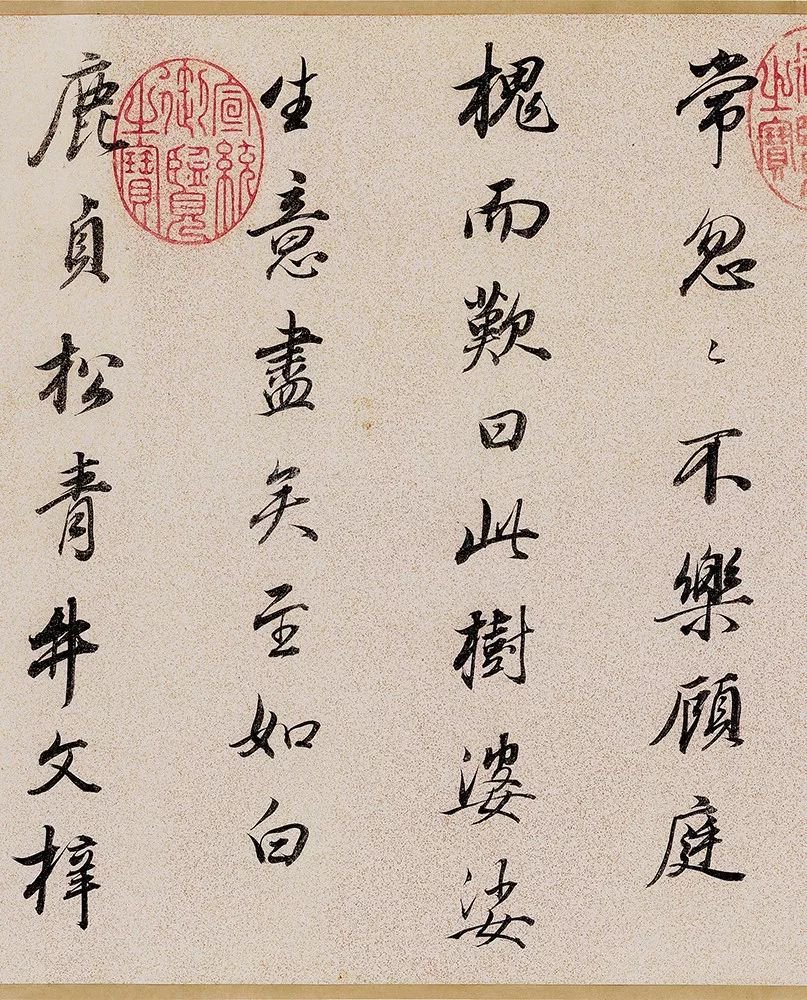 御覽
之寶
常忽〻不樂顧庭
槐而歎曰此樹婆娑
生意盡矣至如白
宣統
御覽
之寶
鹿貞松青牛文梓